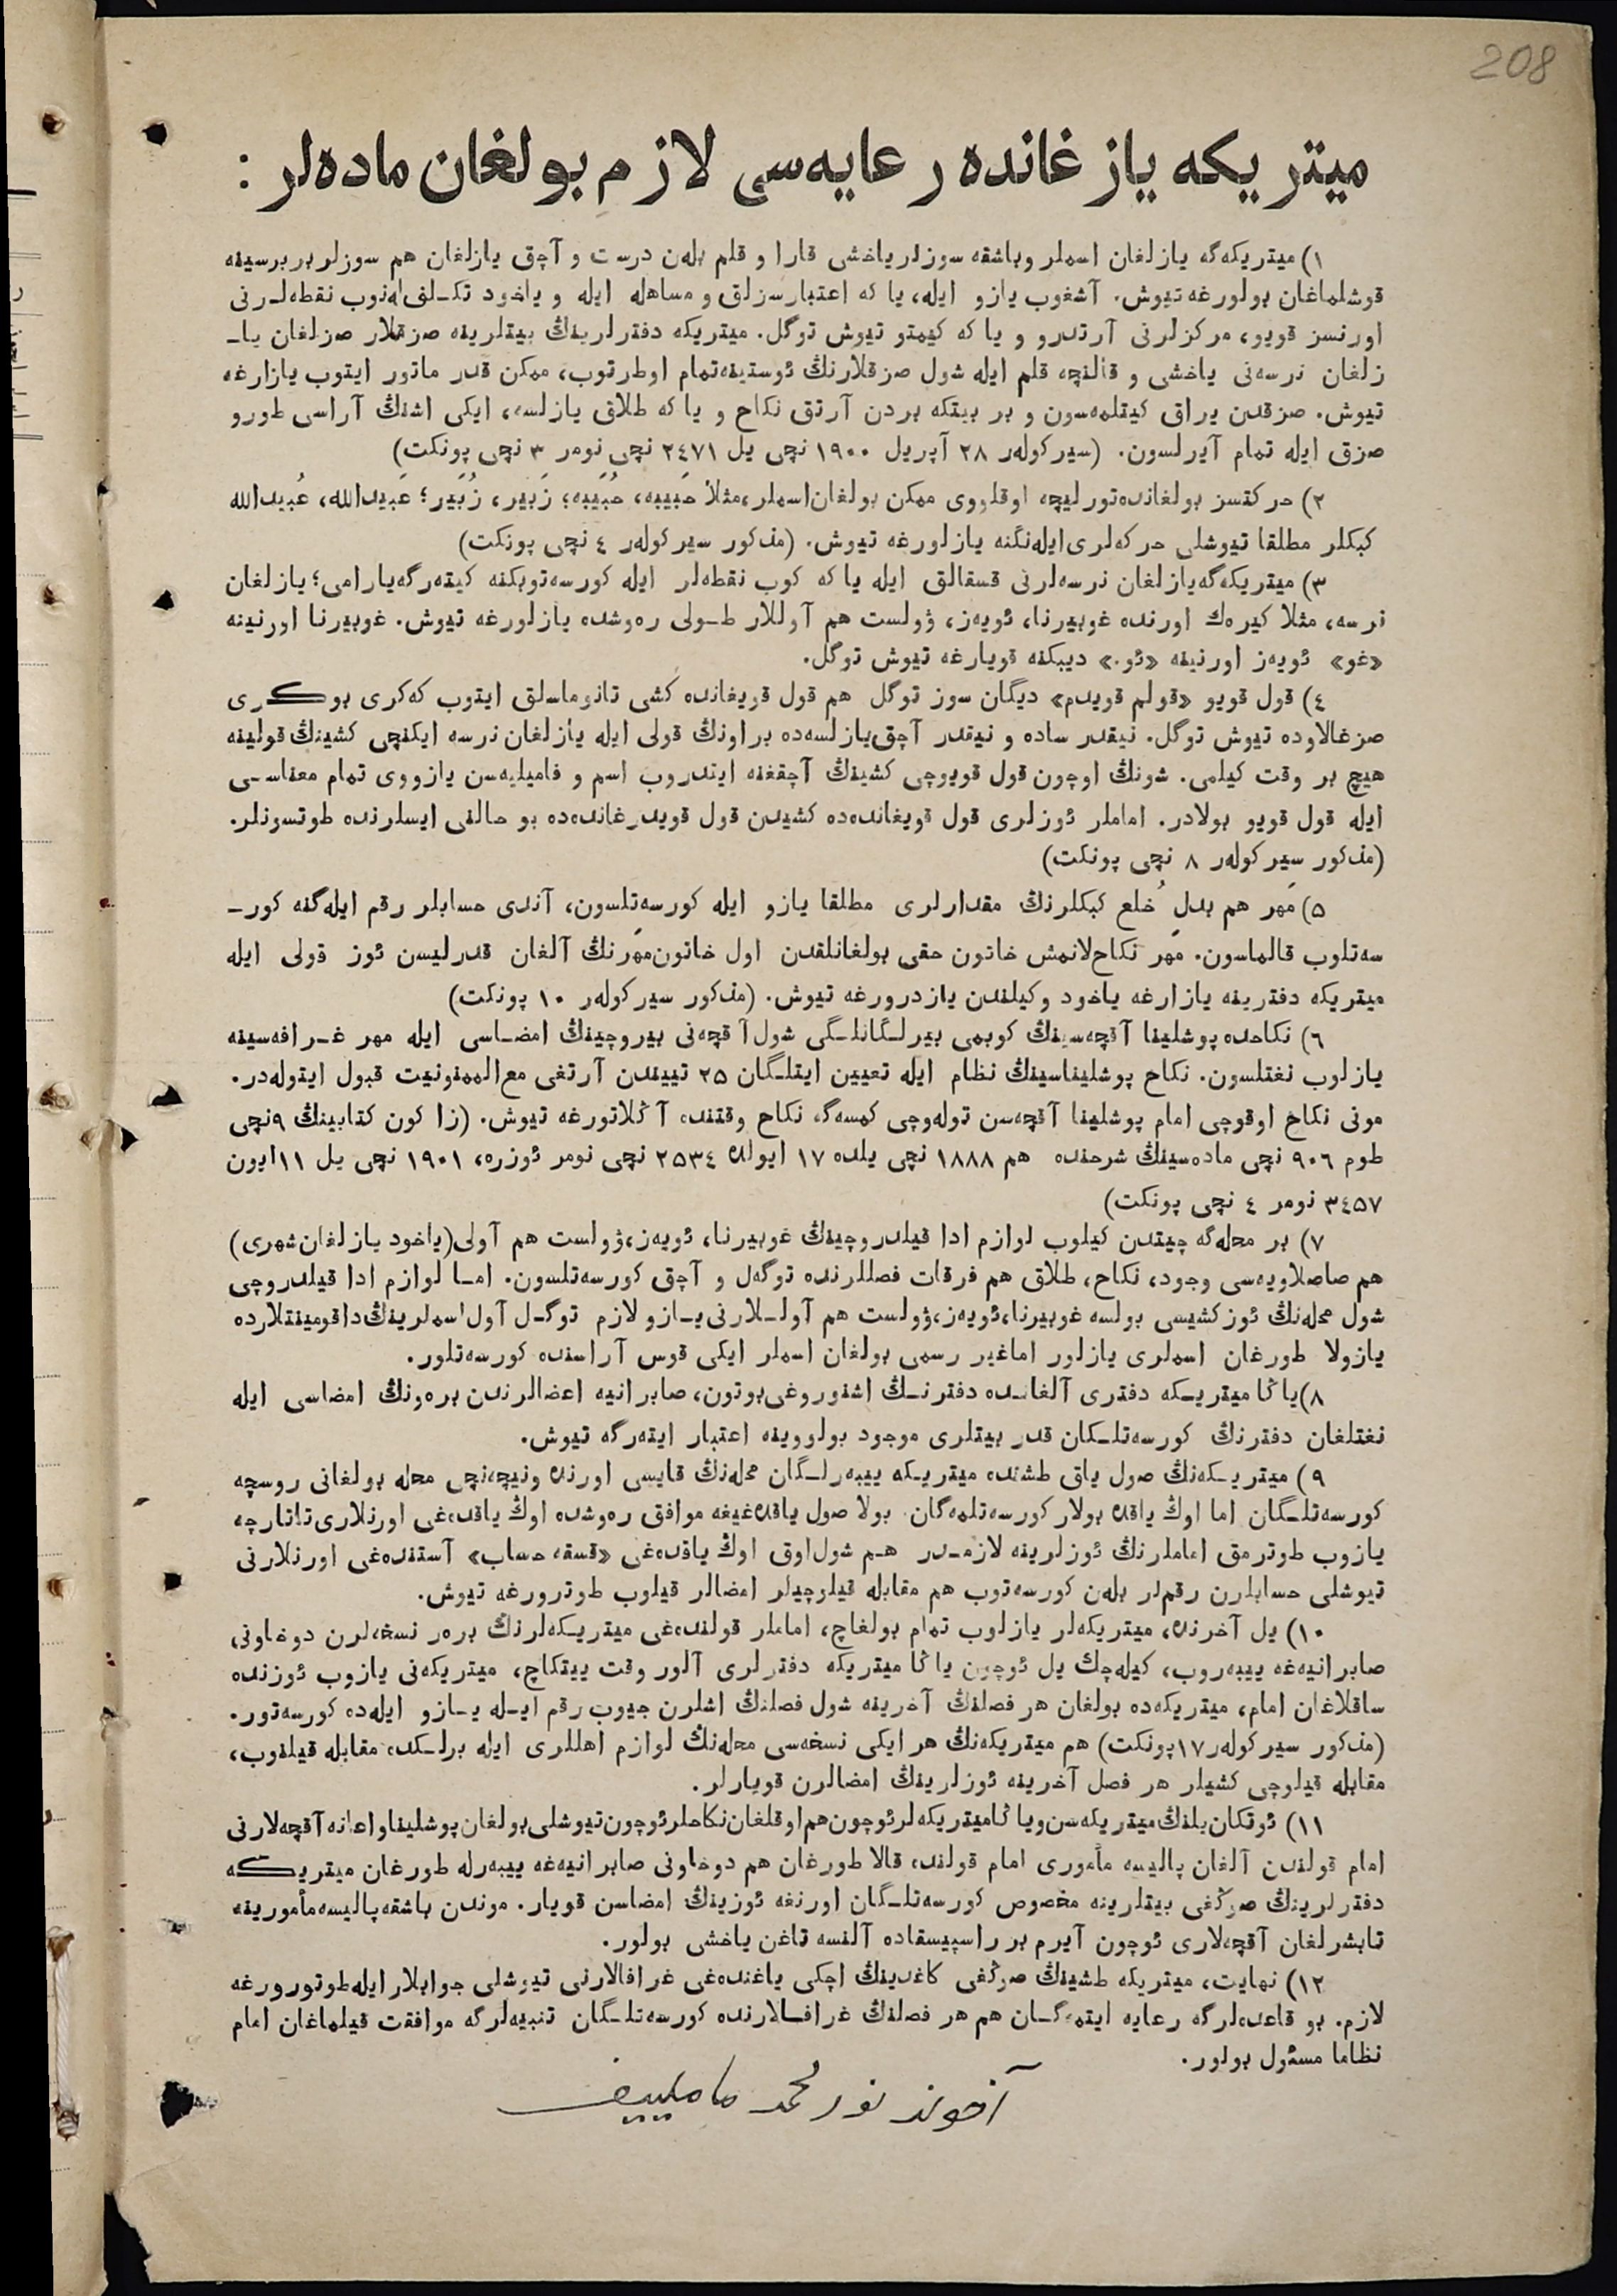 208
میتریکه یازغانده رعایه‌سی لازم بولغان ماده‌لر :
١) میتریکه‌گه یازلغان اسملر وباشقه سوزلر یاخشی قارا و قلم بلەن درست و آچق یازلغان هم سوزلر بربرسینه
قوشلماغان بولورغه تیوش. آشغوب یازو ایله، یا که اعتبارسزلق و مساهله ایله و یاخود تکلف له‌نوب نقطه‌لرنی
اورنسز قویو، مرکزلرنی آرتدرو و یا که کیمتو تیوش توگل. میتریکه دفترلرینڭ بیتلرینه صزقلار صزلغان یا‌ـ
زلغان نرسه‌نی یاخشی و قالنچه قلم ایله شول صزقلارنڭ ئوستینه تمام اوطرتوب، ممکن قدر ماتور ایتوب یازارغه
تیوش. صزقدن یراق کیتلمه‌سون و بر بیتکه بردن آرتق نکاح و یا که طلاق یازلسه، ایکی اشنڭ آراسی طورو
صزق ایله تمام آیرلسون. (سیرکولەر ٢٨ آپریل ١٩٠٠ نچی یل ٢٤٧١ نچی نومر ٣ نچی پونکت)
٢) حرکتسز بولغانده تورلیچه اوقلووی ممکن بولغان اسملر، مثلا حَبیبه، حُبَیبه؛ زَبیر، زُبَیر؛ عَبیدالله، عُبیدالله
کبکلر مطلقا تیوشلی حرکه‌لری ایله‌نگنه یازلورغه تیوش. (مذکور سیرکولەر ٤ نچی پونکت)
٣) میتریکه‌گه یازلغان نرسه‌لرنی قسقالق ایله یا که کوب نقطه‌لر ایله کورسه‌توبکنه کیتەرگه یارامی؛ یازلغان
نرسه، مثلا کیره‌ك اورنده غوبیرنا، ئویه‌ز، ۋولست هم آوللار طـولی ره‌وشده یازلورغه تیوش. غوبیرنا اورنینه
«غو» ئویه‌ز اورنینه «ئو.» دیبکنه قویارغه تیوش توگل.
٤) قول قویو «قولم قویدم» دیگان سوز توگل هم قول قویغانده کشی تانوماسلق ایتوب که‌کری بوکری
صزغالاوده تیوش توگل. نیقدر ساده و نیقدر آچق یازلسه‌ده براونڭ قولی ایله یازلغان نرسه ایکنچی کشینڭ قولینه
هیچ بر وقت کیلمی. شونڭ اوچون قول قویوچی کشینڭ آچقغنه ایتدروب اسم و فامیلیه‌سن یازووی تمام معناسی
ایله قول قویو بولادر. اماملر ئوزلری قول قویغانده‌ده کشیدن قول قویدرغانده‌ده بو حالنی ایسلرنده طوتسونلر.
(مذکور سیرکولەر ٨ نچی پونکت)
٥) مَهر هم بدلِ خُلع کبکلرنڭ مقدارلری مطلقا یازو ایله کورسه‌تلسون، آندی حسابلر رقم ایله‌گنه کور‌ـ
سه‌تلوب قالماسون. مَهر نکاح‌لانمش خاتون حقی بولغانلقدن اول خاتون مَهرنڭ آلغان قدرلیسن ئوز قولی ایله
میتریکه دفترینه یازارغه یاخود وکیلندن یازدرورغه تیوش. (مذکور سیرکولەر ١٠ پونکت)
٦) نکاحده پوشلینا آقچه‌سینڭ کوبمی بیرلگانلگی شول آقچه‌نی بیروچینڭ امضاسی ایله مهر غرافه‌سینه
یازلوب نغتلسون. نکاح پوشلیناسینڭ نظام ایله تعیین ایتلگان ٢٥ تییندن آرتغی مع‌الممنونیت قبول ایتوله‌در.
مونی نکاح اوقوچی امام پوشلینا آقچه‌سن توله‌وچی کمسه‌گه نکاح وقتنده آڭلاتورغه تیوش. (زاکون کتابینڭ ٩نچی
طوم ٩٠٦ نچی ماده‌سینڭ شرحنده هم ١٨٨٨ نچی یلده ١٧ ایولده ٢٥٣٤ نچی نومر ئوزره، ١٩٠١ نچی یل ١١ایون
٣٤٥٧ نومر ٤ نچی پونکت)
٧) بر محله‌گه چیتدن کیلوب لوازم ادا قیلدروچینڭ غوبیرنا، ئویه‌ز، ۋولست هم آولی (یاخود یازلغان شهری)
هم صاصلاویه‌سی وجود، نکاح، طلاق هم فرقات فصللرنده توگه‌ل و آچق کورسه‌تلسون. اما لوازم ادا قیلدروچی
شول محله‌نڭ ئوز کشیسی بولسه غوبیرنا، ئویه‌ز، ۋولست هم آوللارنی یازو لازم توگل آول اسملرینڭ داقومینتلارده
یازولا طورغان اسملری یازلور اماغیر رسمی بولغان اسملر ایکی قوس آراسنده کورسه‌تلور.
٨) یاڭا میتریکه دفتری آلغانده دفترنڭ اشنوروغی بوتون، صابرانیه اعضالرندن بره‌ونڭ امضاسی ایله
نغتلغان دفترنڭ کورسه‌تلگان قدر بیتلری موجود بولووینه اعتبار ایته‌رگه تیوش.
٩) میتریکه‌نڭ صول یاق طشنده میتریکه ییبه‌رلگان محله‌نڭ قایسی اورنده ونیچه‌نچی محله بولغانی روسچه
کورسه‌تلگان اما اوڭ یاقده بولار کورسه‌تلمه‌گان. بولا صول یاقده‌غیغه موافق ره‌وشده اوڭ یاقده‌غی اورنلاری تاتارچه
یازوب طوترمق اماملرنڭ ئوزلرینه لازمدر هم شول اوق اوڭ یاقده‌غی «قسقه حساب» آستنده‌غی اورنلارنی
تیوشلی حسابلرن رقم‌لر بلەن کورسه‌توب هم مقابله قیلوچیلر امضالر قیلوب طوترورغه تیوش.
١٠) یل آخرنده میتریکه‌لر یازلوب تمام بولغاچ، اماملر قولنده‌غی میتریکه‌لرنڭ بره‌ر نسخه‌لرن دوخاونی
صابرانیه‌غه ییبه‌روب، کیله‌چك یل ئوچون یاڭا میتریکه دفترلری آلور وقت ییتکاچ، میتریکه‌نی یازوب ئوزنده
ساقلاغان امام، میتریکه‌ده بولغان هر فصلنڭ آخرینه شول فصلنڭ اشلرن جیوب رقم ایله یازو ایله‌ده کورسه‌تور.
(مذکور سیرکولەر ١٧پونکت) هم میتریکه‌نڭ هر ایکی نسخه‌سی محله‌نڭ لوازم اهللری ایله برلکده مقابله قیلنوب،
مقابله قیلوچی کشیلر هر فصل آخرینه ئوزلرینڭ امضالرن قویارلر.
١١) ئوتکان یلنڭ میتریکه‌سن ویاڭا میتریکه‌لر ئوچون هم اوقلغان نکاحلر ئوچون تیوشلی بولغان پوشلینا و اعانه آقچه‌لارنی
امام قولندن آلغان پالیسه مأموری امام قولنده قالا طورغان هم دوخاونی صابرانیه‌غه ییبه‌رله طورغان میتریکه
دفترلرینڭ صوڭغی بیتلرینه مخصوص کورسه‌تلگان اورنغه ئوزینڭ امضاسن قویار. موندن باشقه پالیسه مأمورینه
تابشرلغان آقچه‌لاری ئوچون آیرم بر راسپیسقاده آلنسه تاغن یاخشی بولور.
١٢) نهایت، میتریکه طشینڭ صوڭغی کاغدینڭ اچکی یاغنده‌غی غرافالارنی تیوشلی جوابلار ایله طوتورورغه
لازم. بو قاعده‌لرگه رعایه ایتمه‌گان هم هر فصلنڭ غرافالارنده کورسه‌تلگان تنبیه‌لرگه موافقت قیلماغان امام
نظاما مسئول بولور.
آخوند نور محمد ماملییف